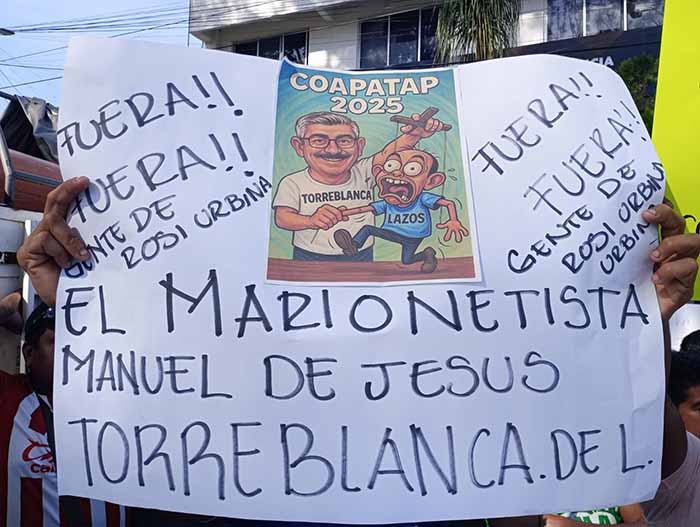 FUERA!!
FUERA!!
GENTE DE
ROSI URBIÑA
COAPATAP
2025
TORREBLANCA
LAZOS
FUERA!!
FUERA!!
GENTE DE
ROSI URBINA
URBINA
EL MARIONETISTA
MANUEL DE JESUS
TORREBLANCA. DE L.